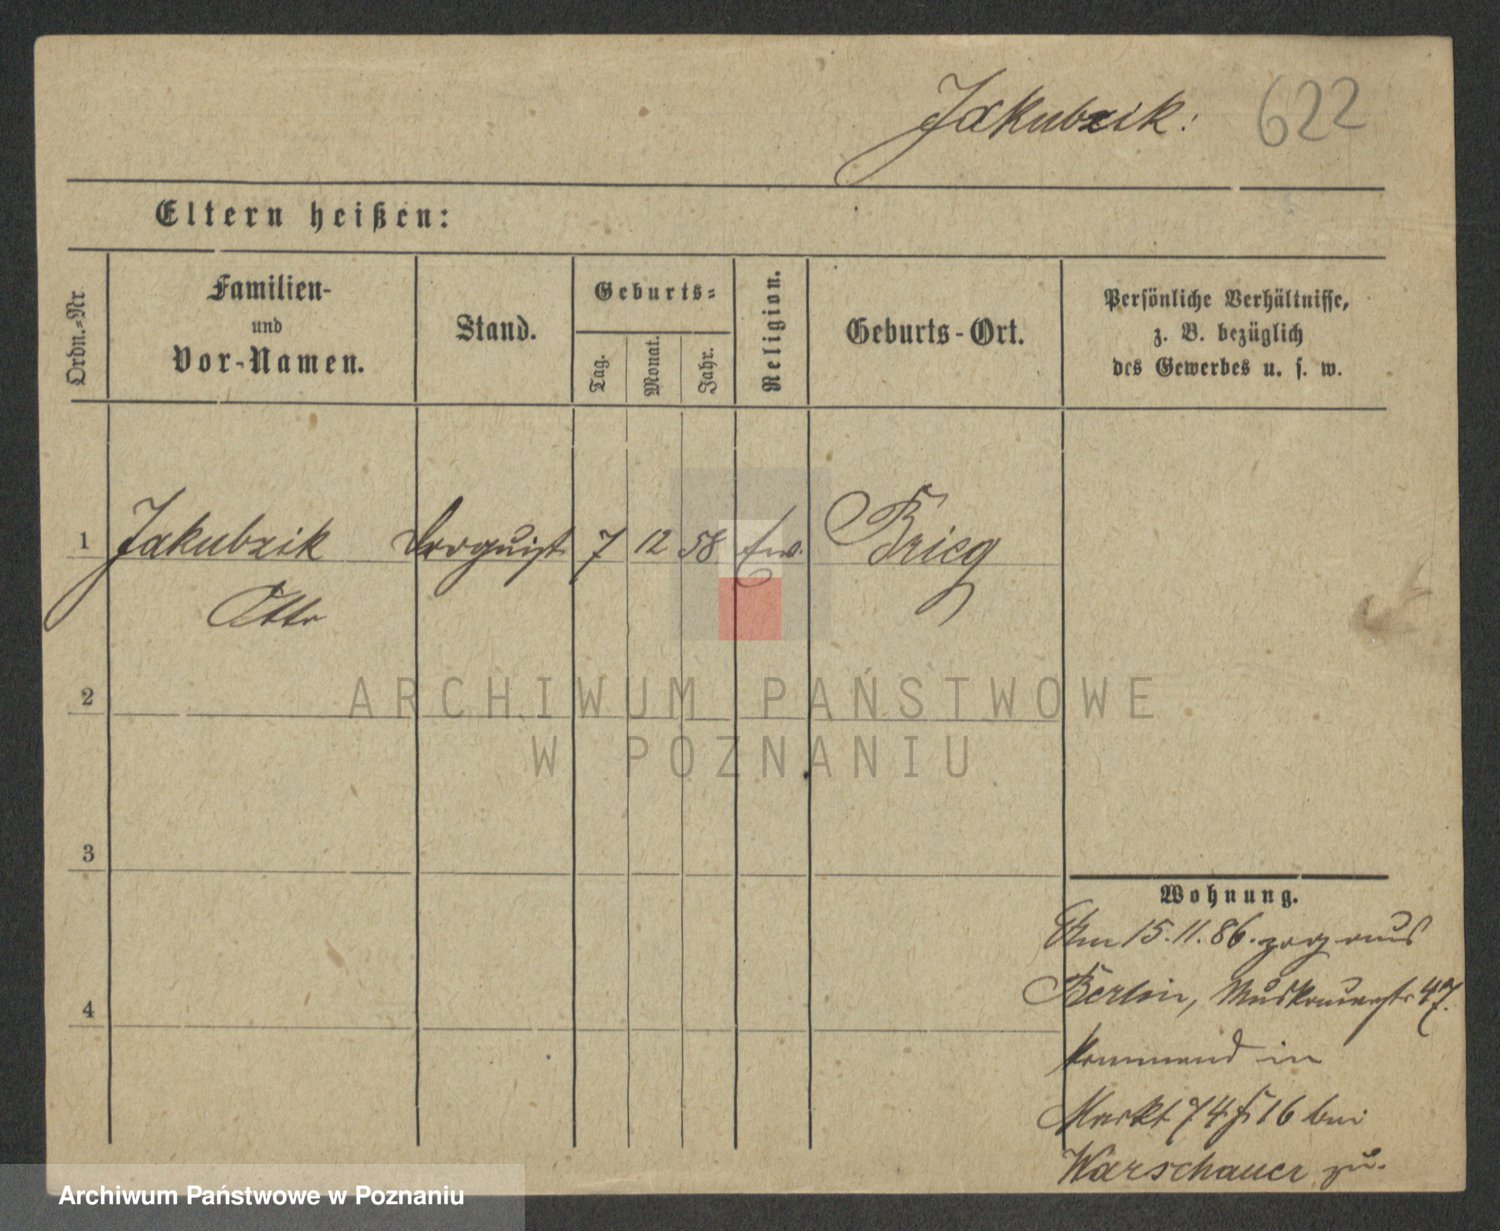 Jakubzik: 622
Eltern heißen:
Ordn.=Nr
Familien-
und
Vor-Namen.
Stand.
Geburts=
Tag.
Monat.
Jahr.
Religion.
Geburts-Ort.
Persönliche Verhältnisse,
z. B. bezüglich
des Gewerbes u. s. w.
1 Jakubzik Droguist 7 12 58 Ev. Brieg
Otto
2
3
4
Wohnung.
Am 15.11.86. zog aus
Berlin, Muskauerstr 47.
kommend in
Markt 74 16 bei
Warschauer zu.
ARCHIWUM PAŃSTWOWE
W POZNANIU
Archiwum Państwowe w Poznaniu